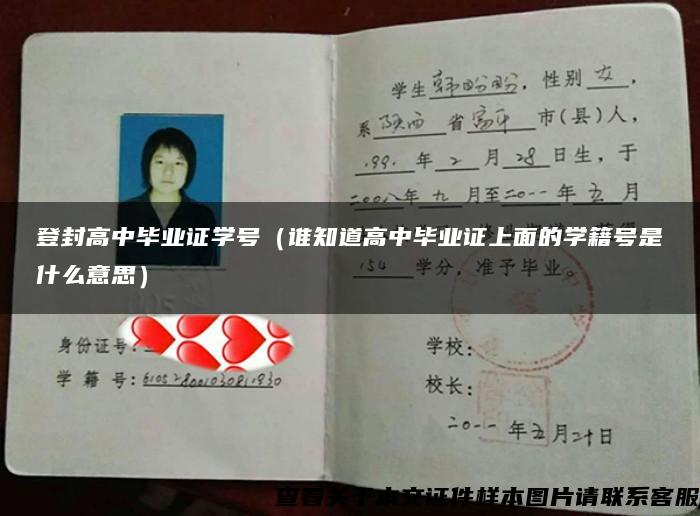 学生韩盼盼，性别女，
系陕西省富平市(县)人，
1991年2月28日生，于
二00八年九月至二0一一年五月
登封高中毕业证学号（谁知道高中毕业证上面的学籍号是
什么意思）
154学分，准予毕业。
身份证号：
学籍号：
学校：
校长：
二0一一年五月二十日
查看关于本文证件样本图片请联系客服